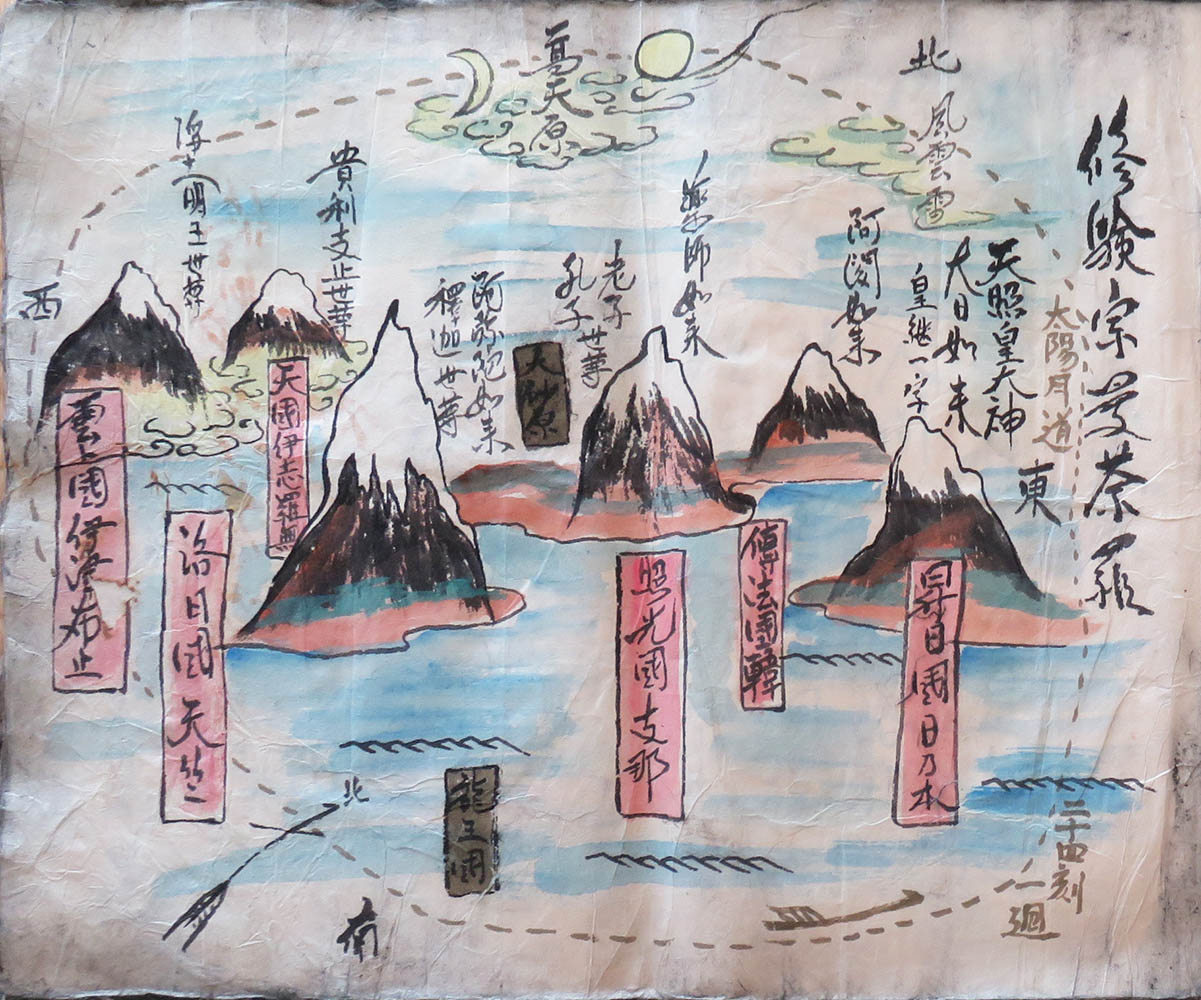 修験宗曼荼羅
太陽月道
天照皇大神
大日如来
皇継一字
東
北
風雲雷
阿閦如来
薬師如来
老子
孔子世尊
高天原
阿弥陀如来
釋迦世尊
貴利支止世尊
西
大砂原
天國伊志羅無
雲上國伊須布止
沿日國天竺
照光國支那
傳法國韓
昇日國日乃本
龍王國
北
南
二十四刻
一廻